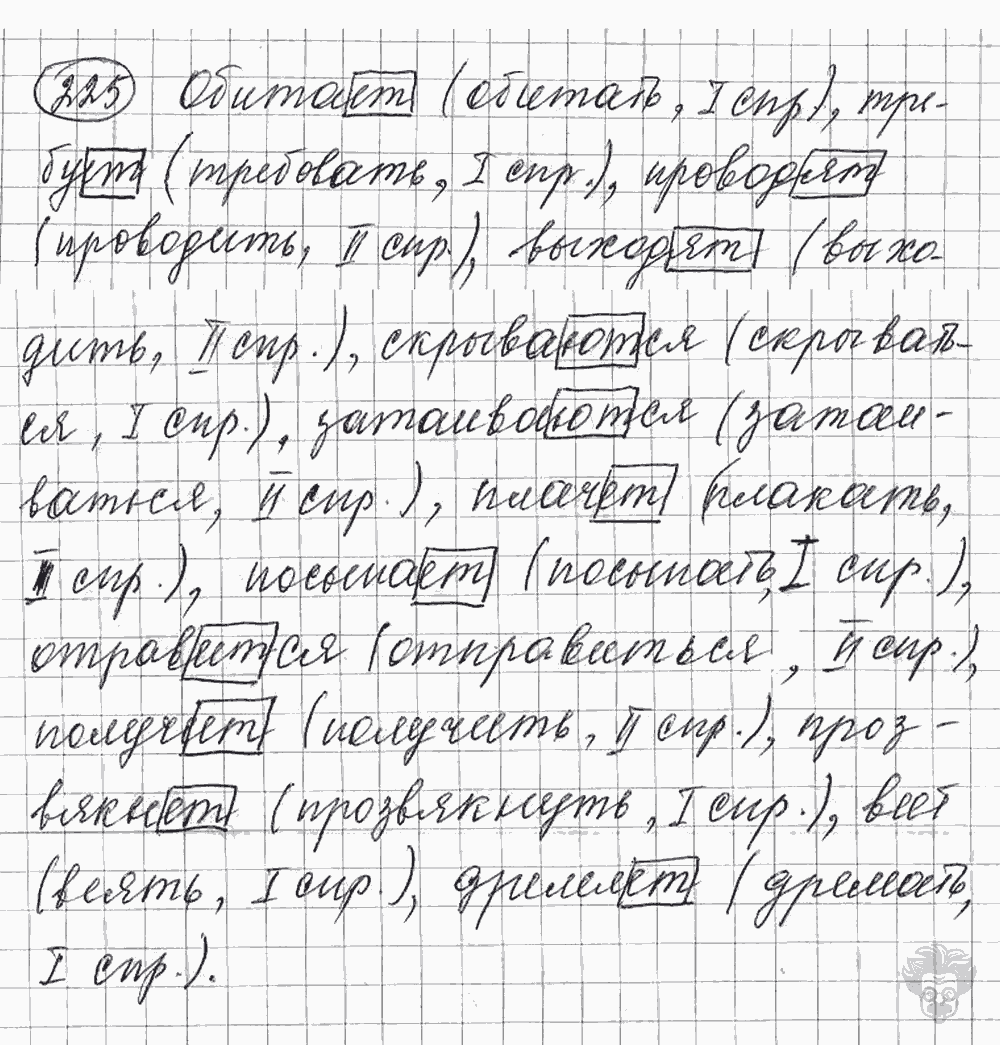 225 Обитает (обитать, I спр.), тре-
бует (требовать, I спр.), проводят
(проводить, II спр.), выходят (выхо-
дить, II спр.), скрываются (скрывать-
ся, I спр.), затаиваются (затаи-
ваться, II спр.), плачет (плакать,
I спр.), посыпает (посыпать, I спр.),
отравится (отправиться, II спр.),
получит (получить, II спр.), проз-
вякнет (прозвякнуть, I спр.), веет
(веять, I спр.), дремлет (дремать,
I спр.).